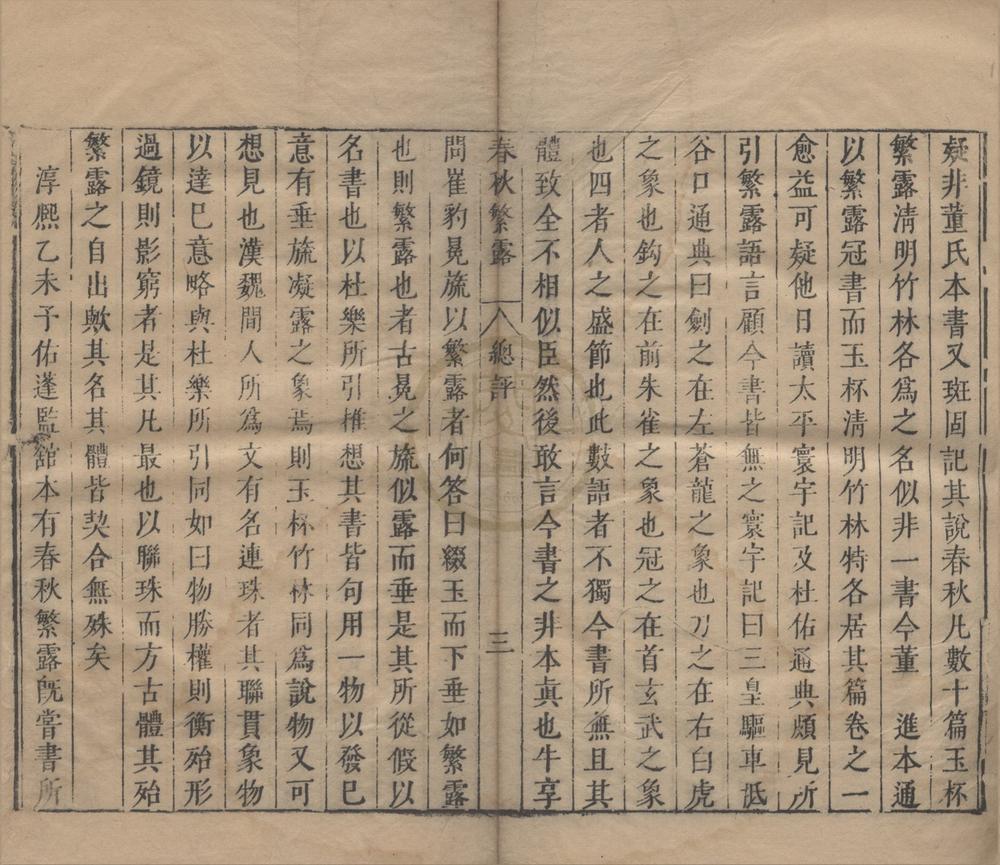 疑非董氏本書又班固記其說春秋凡數十篇玉杯
繁露淸明竹林各爲之名似非一書今董　進本通
以繁露冠書而玉杯淸明竹林特各居其篇卷之一
愈益可疑他日讀太平寰宇記及杜佑通典頗見所
引繁露語言顧今書皆無之寰宇記曰三皇驅車抵
谷口通典曰劍之在左蒼龍之象也刀之在右白虎
之象也鈎之在前朱雀之象也冠之在首玄武之象
也四者人之盛節也此數語者不獨今書所無且其
體致全不相似臣然後敢言今書之非本眞也牛享
春秋繁露　總評　三
問崔豹冕旒以繁露者何答曰綴玉而下垂如繁露
也則繁露也者古冕之旒似露而垂是其所從假以
名書也以杜樂所引推想其書皆句用一物以發已
意有垂旒凝露之象焉則玉杯竹林同爲說物又可
想見也漢魏間人所爲文有名連珠者其聯貫象物
以達已意略與杜樂所引同如曰物勝權則衡殆形
過鏡則影窮者是其凡最也以聯珠而方古體其殆
繁露之自出歟其名其體皆契合無殊矣
淳熙乙未予佑蓬監舘本有春秋繁露旣嘗書所